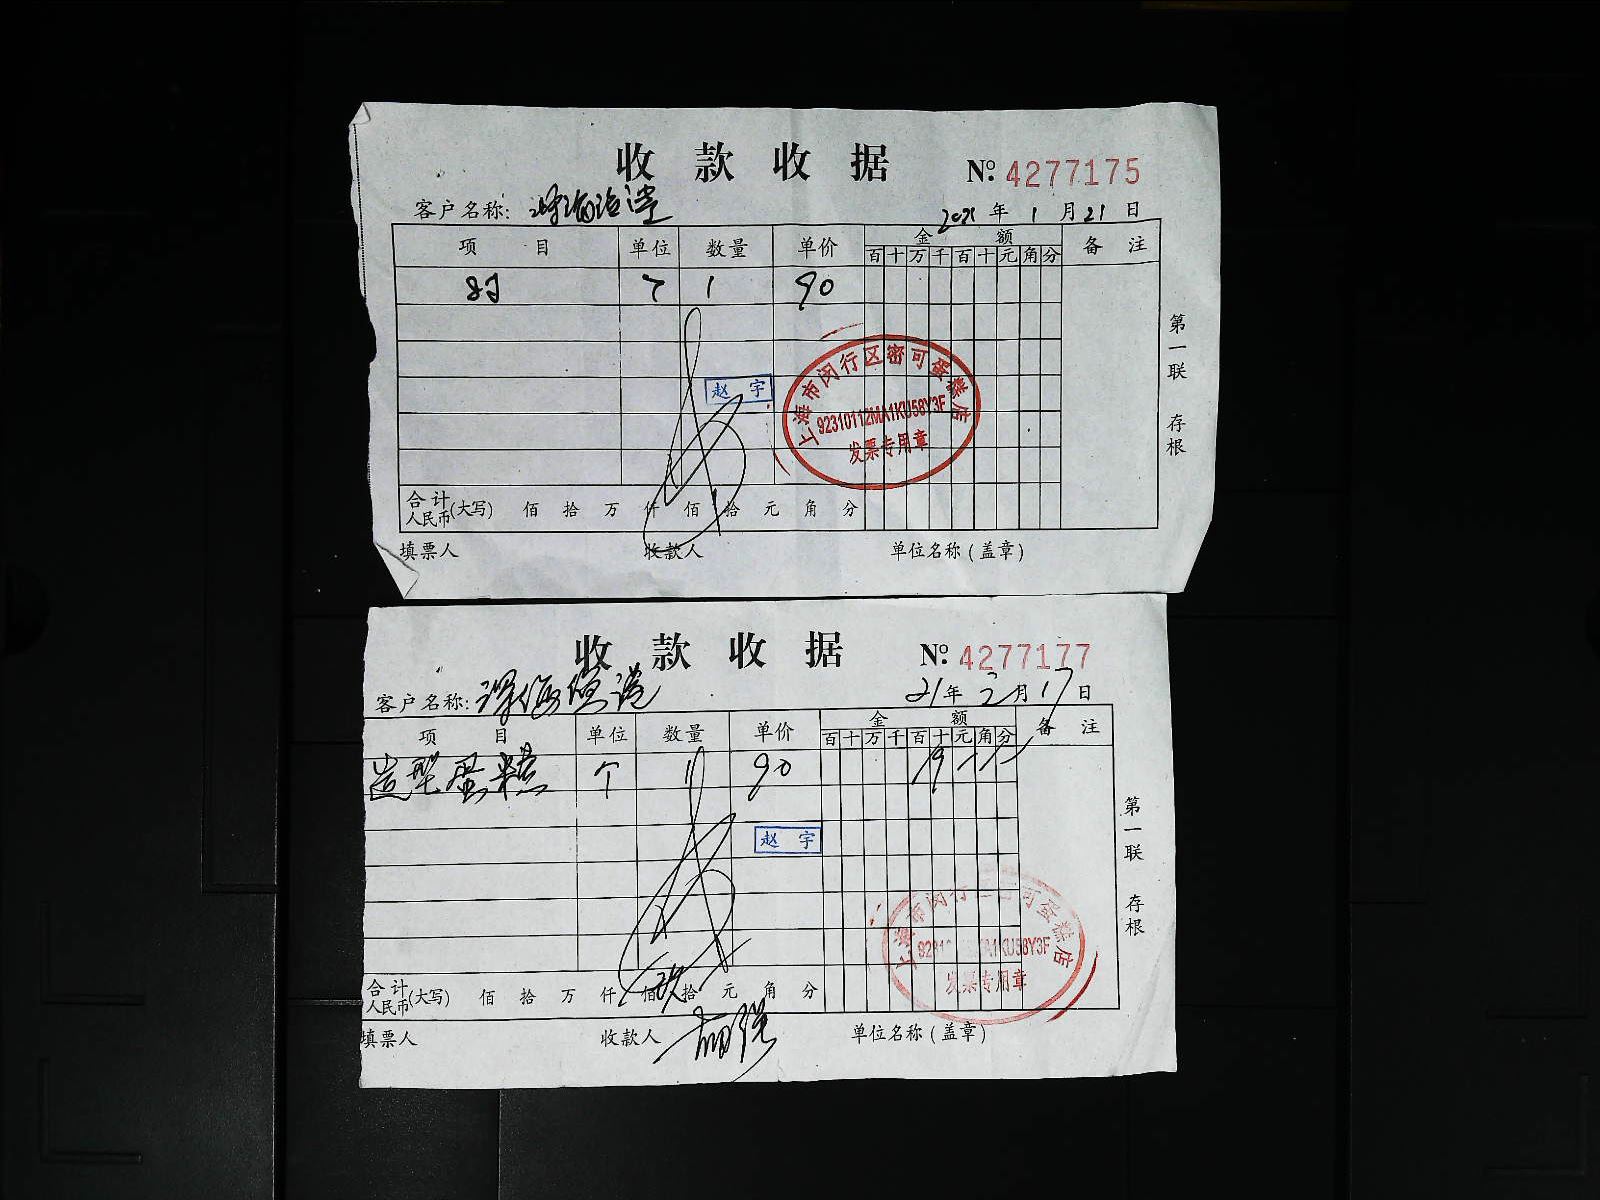 收款收据 № 4277175
客户名称:
2021年1月21日
项目 单位 数量 单价 金额 备注
百十万千百十元角分
1 90
赵宇
上海市闵行区密可蛋糕店
92310112MA1KU58Y3F
发票专用章
第一联 存根
合计人民币(大写) 佰 拾 万 仟 佰 拾 元 角 分
填票人 收款人 单位名称(盖章)
收款收据 № 4277177
客户名称:
21年2月17日
项目 单位 数量 单价 金额 备注
百十万千百十元角分
造型蛋糕 个 1 90
赵宇
上海市闵行区密可蛋糕店
发票专用章
第一联 存根
合计人民币(大写) 佰 拾 万 仟 佰 玖拾 元 角 分
填票人 收款人 单位名称(盖章)